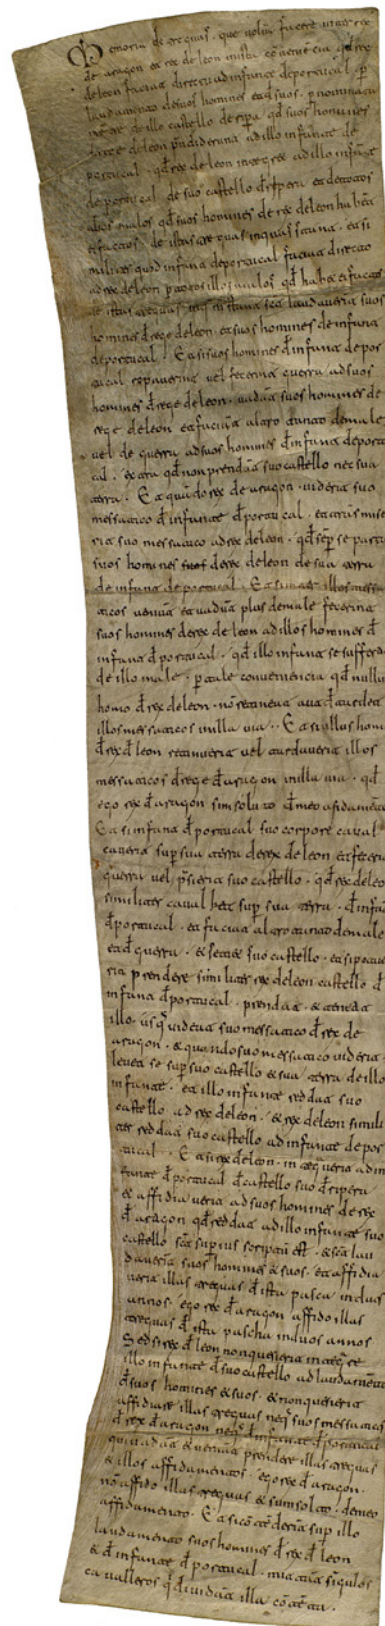 Memoria de treguas. que voluit facere inter rex
de aragon et rex de leon mista conveniencia qd rex
de leon faciat directu ad infante de portucal p
laudamento de suos homines et de suos. p nominatu
de illo castello de ripera qd suos homines
de rege de leon prendiderunt ad illo infante de
portucal. qd rex de leon integret ad illo infante
de portucal. de suo castello d ripera et de totos
alios malos qd suos homines de rex de leon habent
ei factos. de istas treguas in quas sunt. et si
militer quod infans de portucal faciat directo
ad rex de leon p totos illos malos qd habet ei factos
de istas treguas in qua sunt sic laudaverint suos
homines d rege de leon. et suos homines de infant
de portucal. Et si suos homines d infant de por
tucal ropaverint vel fecerint guerra ad suos
homines d rege de leon. vadant suos homines de
rege de leon et faciant altro tanto de male
vel de guerra ad suos homines d infant de portu
cal. extra qd non prendant suo castello nec sua
terra. Et quando rex de aragon viderit suo
messatico d infante d portucal. et transmise
rit suo messatico ad rex de leon. qd semp se partant
suos homines de rex de leon de sua terra
de infant de portucal. Et si inter illos messa
ticos veniunt et vadunt plus de male fecerint
suos homines de rex de leon ad illos homines d
infant d portucal. qd illo infant se sufferat
de illo male. p tale conveniencia qd nullu
homo d rex de leon. non retineat aut d tardet
illos messaticos in illa via. Et si ullus homo
d rex d leon retinuerit vel tardaverit illos
messaticos d rege d aragon in illa via. qd
ego rex d aragon sim soluto d meo afidamento
Et si infant d portucal suo corpore caval
caverit sup sua terra de rex de leon et fecerit
guerra vel prisierit suo castello. qd rex de leon
similiter cavalket sup sua terra. d infant
d portucal. et faciat altro tanto de male
et d guerra. & setiet suo castello. et si potue
rit prendere similiter rex de leon castello d
infant d portucal. prendat. & teneat
illo. usq viderit suo messatico d rex de
aragon. & quando suo messatico viderit
levet se sup suo castello & sua terra de illo
infante. et illo infante reddat suo
castello ad rex de leon. & rex de leon simili
ter reddat suo castello ad infante de por
tucal. Et si rex de leon. integraverit ad in
fante d portucal d castello suo d ripera
& affidiaverit ad suos homines de rex
d aragon qd reddat ad illo infante suo
castello sic superius scriptum est. & sic lau
daverint suos homines & suos. et affidia
verit illas treguas d ista pasca in duos
annos. ego rex d aragon affido illas
treguas d ista pascha in duos annos
Sed si rex d leon non quesierit integrare
illo infante d suo castello ad laudamento
d suos homines & suos. & non quesierit
affidiare illas treguas neq suos messaticos
d rex d aragon neq d infante d portucal
qui vadant & veniant prendere illas treguas
& illos affidamentos. ego rex d aragon.
non affido illas treguas & sum soluto. d meo
affidamento. Et si contenderint sup illo
laudamento suos homines d rex d leon
& d infante d portucal. mittant singulos
cavalleros qd dividant illa contenta.